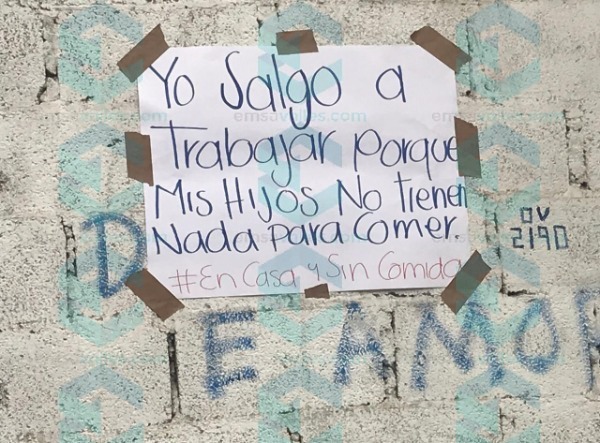 Yo Salgo a
Trabajar Porque
Mis Hijos No Tienen
Nada Para Comer.
#En Casa y Sin Comida
OV
2190
D
E AMOR
emsavalles.com